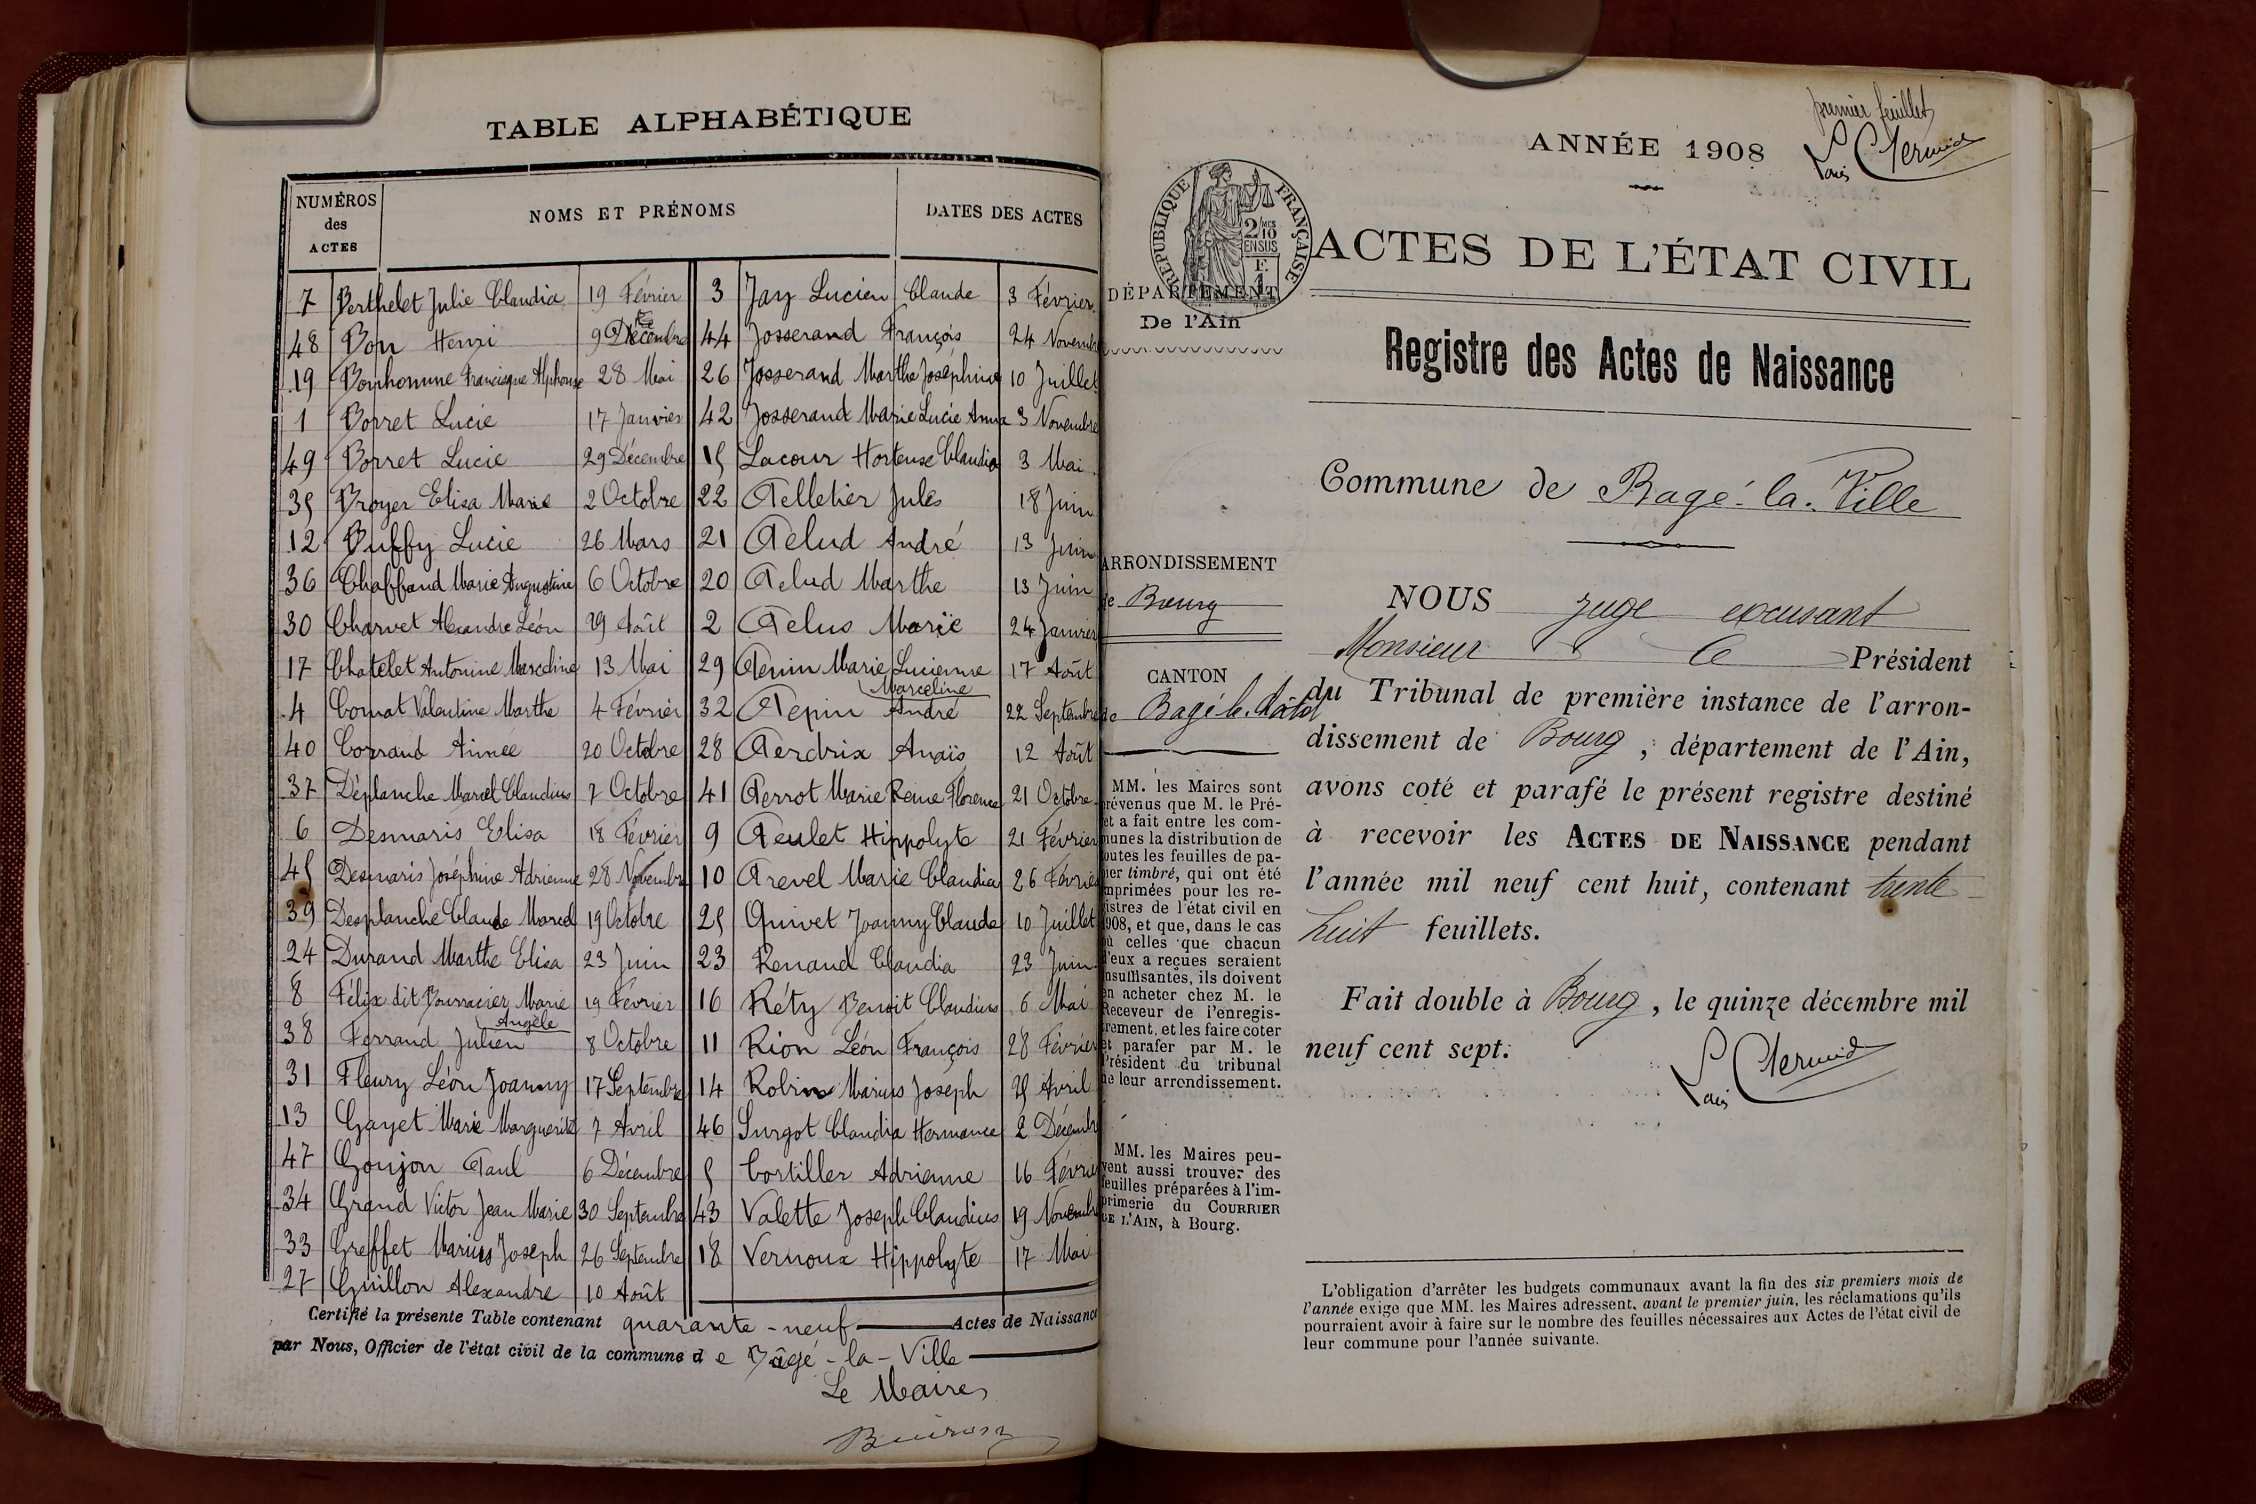 TABLE ALPHABÉTIQUE
NUMÉROS des ACTES
NOMS ET PRÉNOMS
DATES DES ACTES
7 Berthelet Julie Claudia 19 Février
48 Bon Henri 9 Décembre
19 Bonhomme Francisque Alphonse 28 Mai
1 Borret Lucie 17 Janvier
49 Borret Lucie 29 Décembre
35 Broyer Elisa Marie 2 Octobre
12 Buffy Lucie 26 Mars
36 Chaffaud Marie Augustine 6 Octobre
30 Charvet Alexandre Léon 29 Août
17 Chatelet Antonine Marceline 13 Mai
4 Cornat Valentine Marthe 4 Février
40 Corrand Aimée 20 Octobre
37 Déplanche Marcel Claudius 7 Octobre
6 Desmaris Elisa 18 Février
45 Desmaris Joséphine Adrienne 28 Novembre
39 Desplanche Claude Marcel 19 Octobre
24 Durand Marthe Elisa 23 Juin
8 Félix dit Bourracier Marie 19 Février
Angèle
38 Ferrand Julien 8 Octobre
31 Fleury Léon Joanny 17 Septembre
13 Gayet Marie Marguerite 7 Avril
47 Goujon Paul 6 Décembre
34 Grand Victor Jean Marie 30 Septembre
33 Greffet Marius Joseph 26 Septembre
27 Guillon Alexandre 10 Août
3 Jay Lucien Claude 3 Février
44 Josserand François 24 Novembre
26 Josserand Marthe Joséphine 10 Juillet
42 Josserand Marie Lucie Anna 3 Novembre
15 Lacour Hortense Claudia 3 Mai
22 Pelletier Jules 18 Juin
21 Pelud André 13 Juin
20 Pelud Marthe 13 Juin
2 Pelus Marie 24 Janvier
29 Penin Marie Lucienne 17 Août
Marceline
32 Pepin André 22 Septembre
28 Perdrix Anaïs 12 Août
41 Perrot Marie Reine Florence 21 Octobre
9 Peulet Hippolyte 21 Février
10 Prevel Marie Claudia 26 Février
25 Quivet Joanny Claude 10 Juillet
23 Renaud Claudia 23 Juin
16 Réty Benoit Claudius 6 Mai
11 Rion Léon François 28 Février
14 Robin Marius Joseph 25 Avril
46 Surgot Claudia Hermance 2 Décembre
5 Tortiller Adrienne 16 Février
43 Valette Joseph Claudius 19 Novembre
18 Vernoux Hippolyte 17 Mai
Certifié la présente Table contenant quarante-neuf Actes de Naissance
par Nous, Officier de l'état civil de la commune de Bâgé-la-Ville
Le Maire
premier feuillet
ANNÉE 1908
RÉPUBLIQUE FRANÇAISE
2/10
EN SUS
DÉPARTEMENT
De l'Ain
ARRONDISSEMENT
de Bourg
CANTON
de Bagé-le-Châtel
MM. les Maires sont
prévenus que M. le Pré-
fet a fait entre les com-
munes la distribution de
toutes les feuilles de pa-
pier timbré, qui ont été
imprimées pour les re-
gistres de l'état civil en
1908, et que, dans le cas
où celles que chacun
d'eux a reçues seraient
insuffisantes, ils doivent
en acheter chez M. le
Receveur de l'enregis-
trement, et les faire coter
et parafer par M. le
Président du tribunal
de leur arrondissement.
MM. les Maires peu-
vent aussi trouver des
feuilles préparées à l'im-
primerie du COURRIER
DE L'AIN, à Bourg.
ACTES DE L'ÉTAT CIVIL
Registre des Actes de Naissance
Commune de Bagé-la-Ville
NOUS juge excusant
Monsieur le Président
du Tribunal de première instance de l'arron-
dissement de Bourg, département de l'Ain,
avons coté et parafé le présent registre destiné
à recevoir les ACTES DE NAISSANCE pendant
l'année mil neuf cent huit, contenant trente-
huit feuillets.
Fait double à Bourg, le quinze décembre mil
neuf cent sept.
L'obligation d'arrêter les budgets communaux avant la fin des six premiers mois de
l'année exige que MM. les Maires adressent, avant le premier juin, les réclamations qu'ils
pourraient avoir à faire sur le nombre des feuilles nécessaires aux Actes de l'état civil de
leur commune pour l'année suivante.